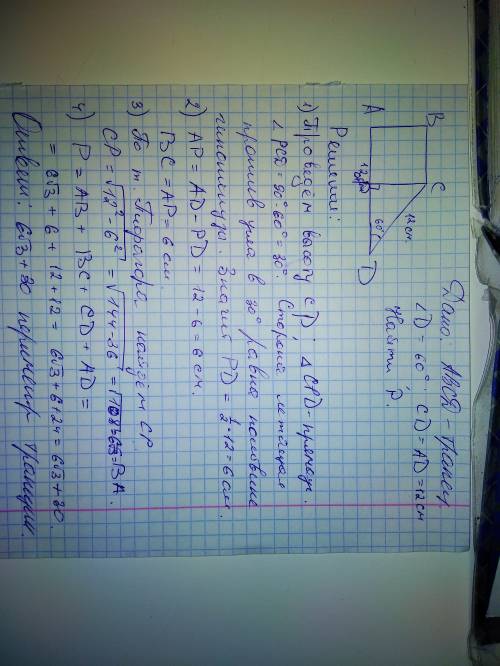 Дано. ABCD - трапец.
∠D = 60°. CD = AD = 12 см
Найти P.
B
C
12 см.
A
12
P
60°
D
Решение:
1) Проведем высоту CP; △CPD - прямоуг.
∠PCD = 90°-60° = 30°. Сторона, лежащая
против угла в 30° равна половине
гипотенузы. Значит PD = ½·12 = 6 см.
2) AP = AD - PD = 12 - 6 = 6 см.
BC = AP = 6 см.
3) По т. Пифагора найдём CP.
CP = √12²-6² = √144-36 = √108 = 6√3 = BA.
4) P = AB + BC + CD + AD =
= 6√3 + 6 + 12 + 12 = 6√3 + 6 + 24 = 6√3 + 30.
Ответ: 6√3 + 30 периметр трапеции.